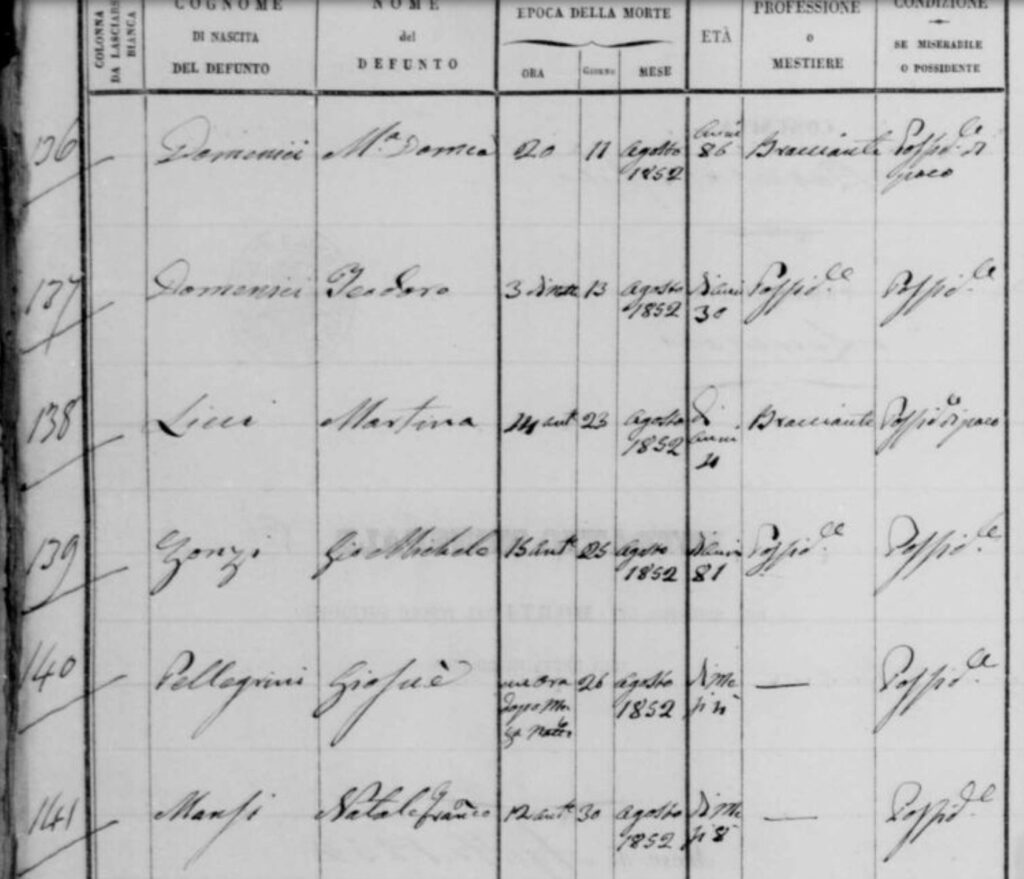 COLONNA DA LASCIARSI BIANCA
COGNOME DI NASCITA DEL DEFUNTO
NOME del DEFUNTO
EPOCA DELLA MORTE
ORA GIORNO MESE
ETÀ
PROFESSIONE o MESTIERE
CONDIZIONE SE MISERABILE O POSSIDENTE
136 Domenici Mª Domca 20 11 Agosto 1852 86 Bracciante Possid.te di poco
137 Domenici Teodoro 3 13 Agosto 1852 30 Possid.te Possid.te
138 Licci Martina 14 ant 23 Agosto 1852 di anni Bracciante Possid.te di poco
139 Zonzi Gio Michele 15 ant 25 Agosto 1852 81 Possid.te Possid.te
140 Pellegrini Giosuè une ora dopo 26 Agosto 1852 di Me si — Possid.te
141 Mansi Natale Franco 12 ant 30 Agosto 1852 di Me si 8 — Possid.te